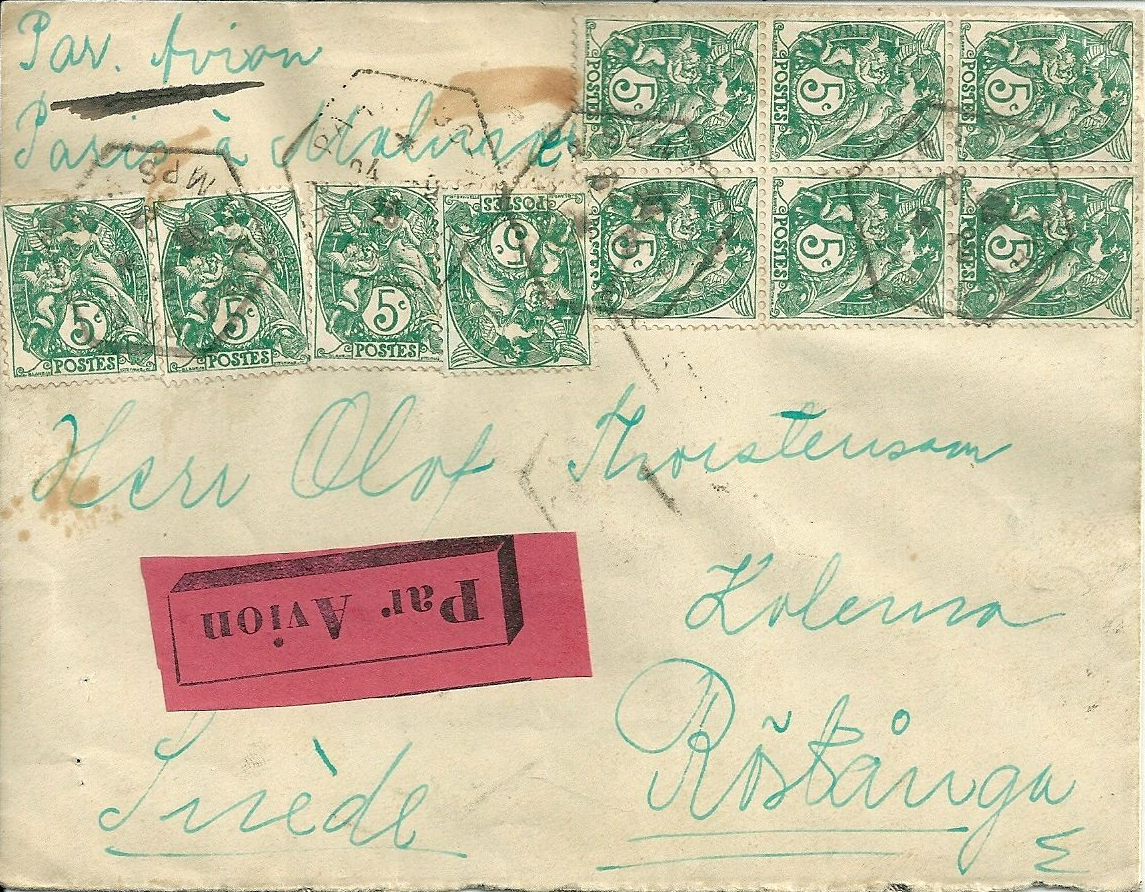 Par. Avion
Paris à Malmö
5c POSTES
5c POSTES
5c POSTES
5c POSTES
5c POSTES
5c POSTES
5c POSTES
5c POSTES
5c POSTES
5c POSTES
MPS
Herr Olof Thorstensson
Par Avion
Kolema
Röstånga
Suède